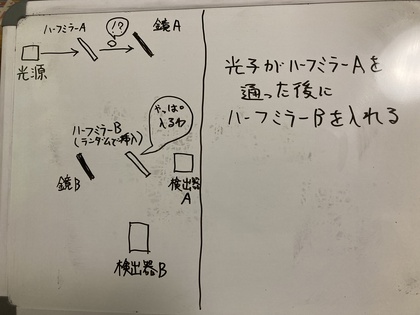 ハーフミラーA
!?
鏡A
光源
やっぱ
入るわ
ハーフミラーB
(ランダムで挿入)
鏡B
検出器
A
検出器B
光子がハーフミラーAを
通った後に
ハーフミラーBを入れる